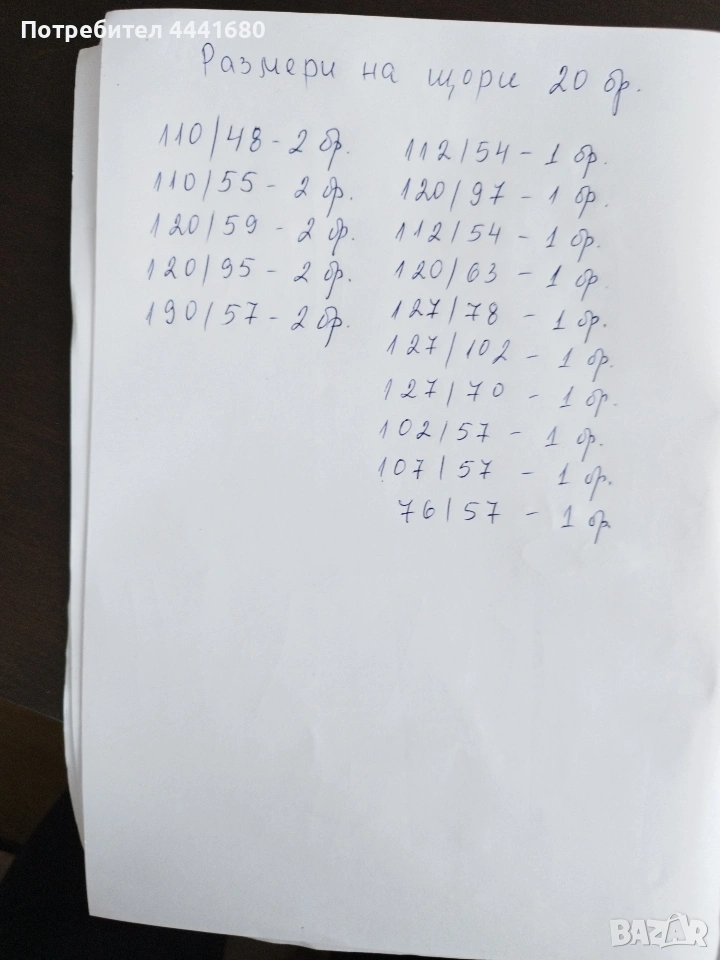 Потребител 4441680
Размери на щори 20 бр.
110/48 - 2 бр.
110/55 - 2 бр.
120/59 - 2 бр.
120/95 - 2 бр.
190/57 - 2 бр.
112/54 - 1 бр.
120/97 - 1 бр.
112/54 - 1 бр.
120/63 - 1 бр.
127/78 - 1 бр.
127/102 - 1 бр.
127/70 - 1 бр.
102/57 - 1 бр.
107/57 - 1 бр.
76/57 - 1 бр.
BAZAR